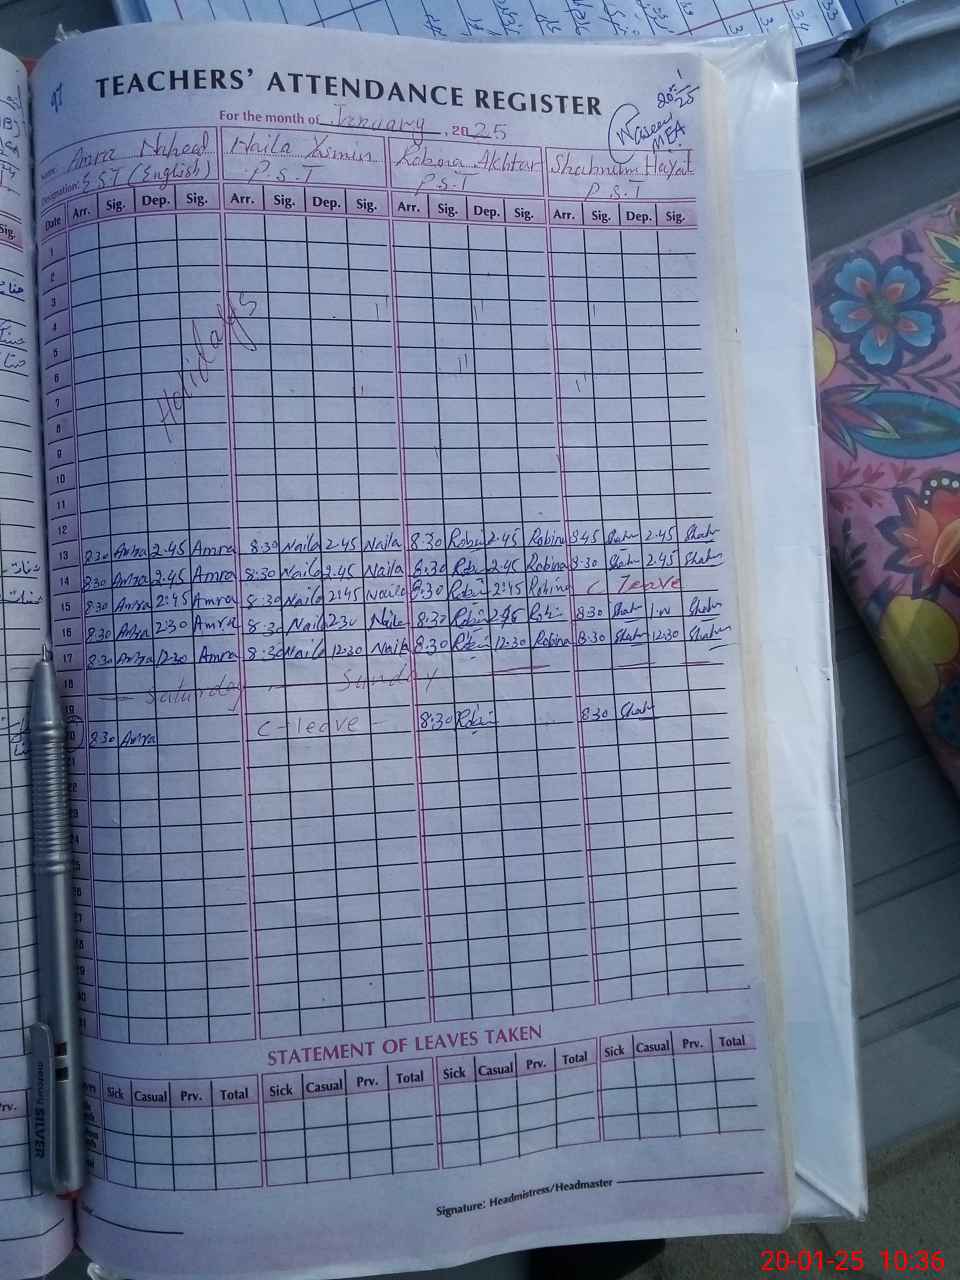 97
TEACHERS' ATTENDANCE REGISTER
20-1-25
Naseem
MEA
For the month of January, 2025
Name: Amra Naheed Naila Yasmin Robina Akhtar Shabnum Hayat
Designation: SST (English) P.S.T P.S.T P.S.T
Date Arr. Sig. Dep. Sig. Arr. Sig. Dep. Sig. Arr. Sig. Dep. Sig. Arr. Sig. Dep. Sig.
1
2
3
4
5
6
7
8
9
10
11
12
Holidays
13 8:30 Amra 2:45 Amra 8:30 Naila 2:45 Naila 8:30 Robin 2:45 Robina 8:45 Shab 2:45 Shab
14 8:30 Amra 2:45 Amra 8:30 Naila 2:45 Naila 8:30 Robi 2:45 Robina 8:30 Shab 2:45 Shab
15 8:30 Amra 2:45 Amra 8:30 Naila 2:45 Naila 8:30 Robin 2:45 Robina C leave
16 8:30 Amra 2:30 Amra 8:30 Naila 2:30 Naila 8:30 Robin Robi 8:30 Shab Shab
17 8:30 Amra 12:30 Amra 8:30 Naila 12:30 Naila 8:30 Robin 12:30 Robina 8:30 Shab 12:30 Shab
18 Saturday Sunday
19
20 8:30 Amra C-leave - 8:30 Robin 8:30 Shab
STATEMENT OF LEAVES TAKEN
Sick Casual Prv. Total Sick Casual Prv. Total Sick Casual Prv. Total Sick Casual Prv. Total
Signature: Headmistress/Headmaster
mercury SILVER
20-01-25 10:36